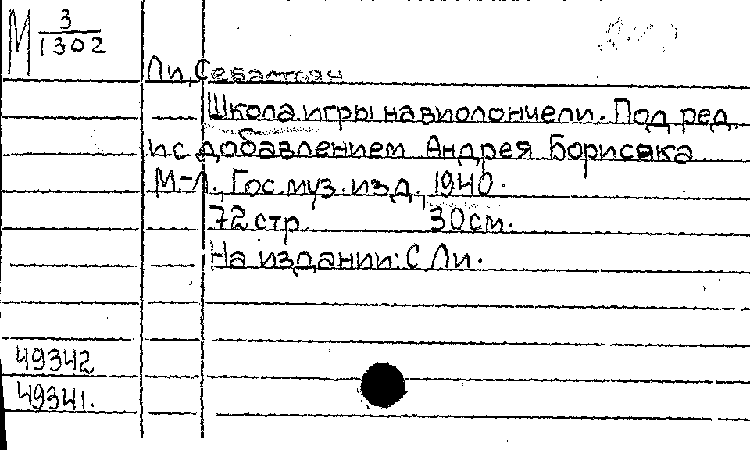 М 3/1302
Ли, Себастьян
Школа игры на виолончели. Под ред.
и с добавлением Андрея Борисяка
М-Л., Гос. муз. изд., 1940.
72 стр. 30 см.
На издании: С Ли.
49342
49341.